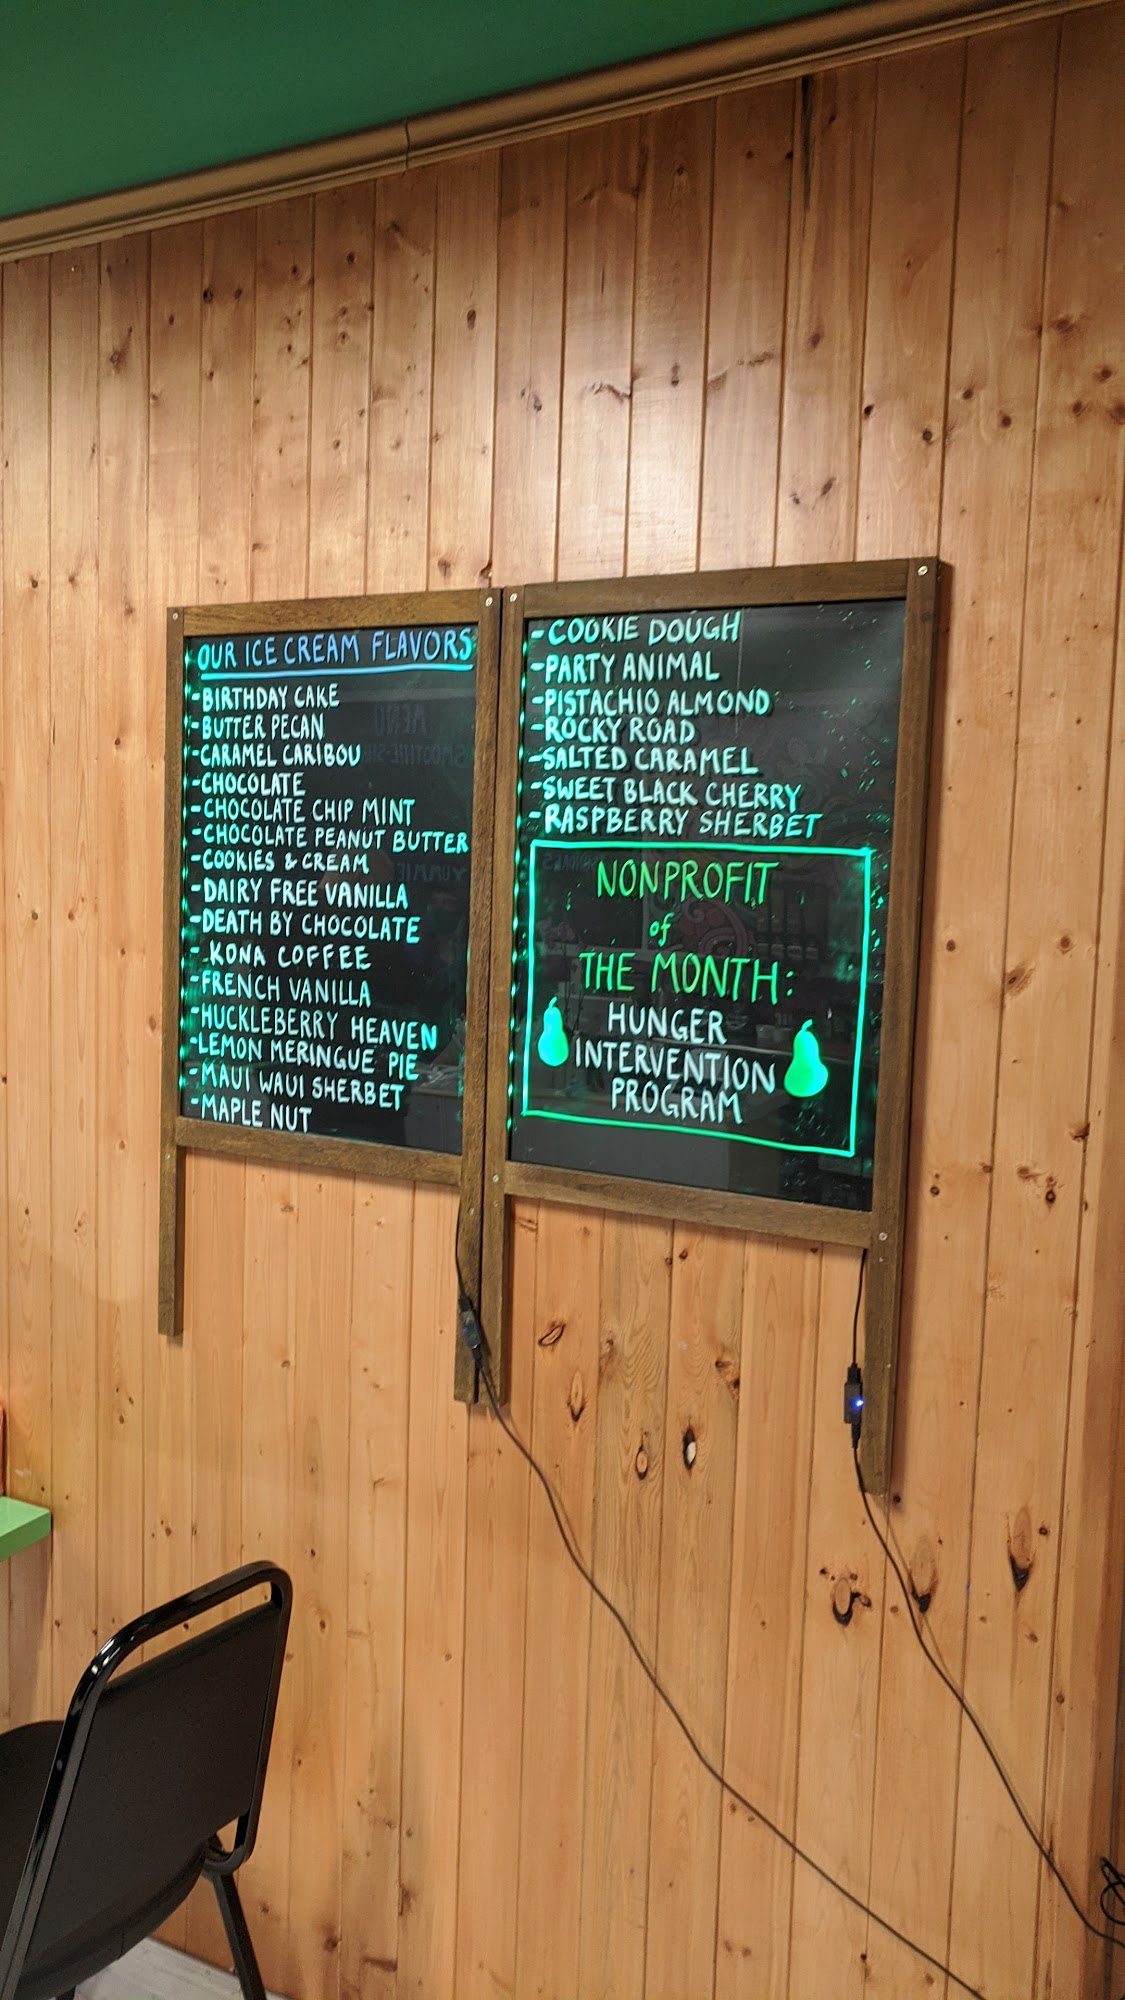 OUR ICE CREAM FLAVORS
-BIRTHDAY CAKE
-BUTTER PECAN
-CARAMEL CARIBOU
-CHOCOLATE
-CHOCOLATE CHIP MINT
-CHOCOLATE PEANUT BUTTER
-COOKIES & CREAM
-DAIRY FREE VANILLA
-DEATH BY CHOCOLATE
-KONA COFFEE
-FRENCH VANILLA
-HUCKLEBERRY HEAVEN
-LEMON MERINGUE PIE
-MAUI WAUI SHERBET
-MAPLE NUT
-COOKIE DOUGH
-PARTY ANIMAL
-PISTACHIO ALMOND
-ROCKY ROAD
-SALTED CARAMEL
-SWEET BLACK CHERRY
-RASPBERRY SHERBET
NONPROFIT
of
THE MONTH:
HUNGER
INTERVENTION
PROGRAM